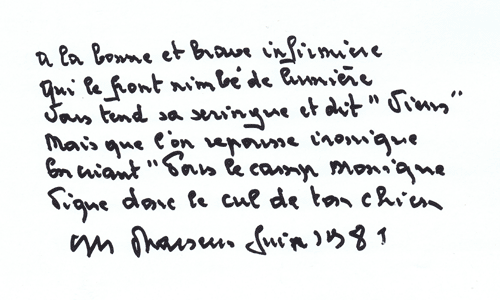 a la bonne et brave infirmiere
qui le front nimbé de lumière
Vous tend sa seringue et dit "Viens"
Mais que l'on repousse ironique
En criant "Fous le camp Monique
Pique donc le cul de ton chien
Juin 1981